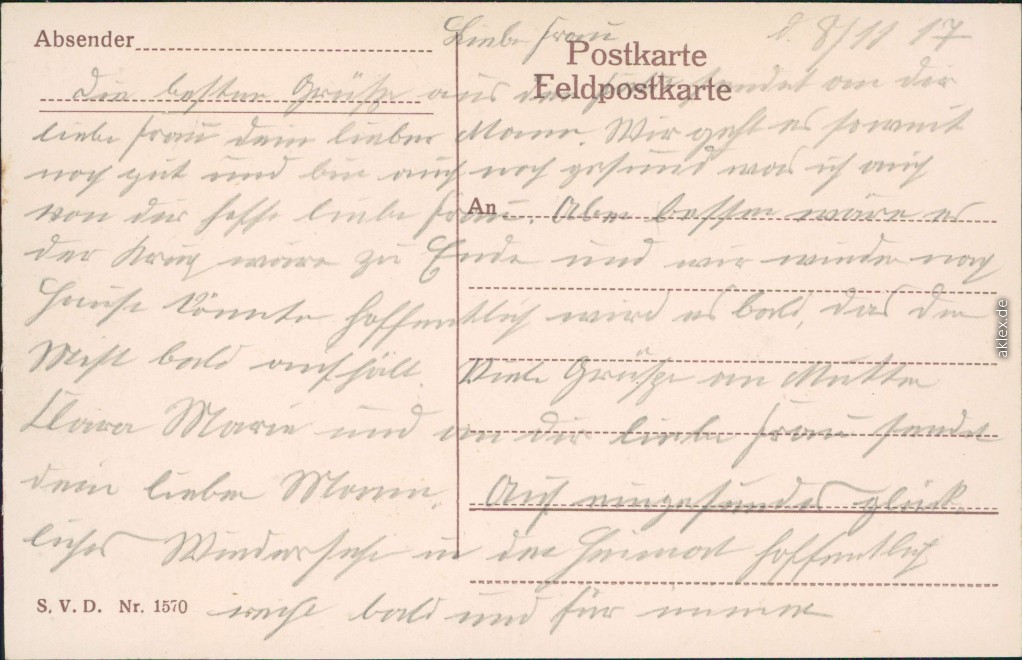 Absender
Postkarte
Feldpostkarte
An
Liebe Frau d. 8/11 17
Die besten Grüße aus der sendet an dir
liebe Frau dein lieber Mann. Mir geht es soweit
noch gut und bin auch noch gesund was ich auch
von dir hoffe liebe Frau. Aber besser wäre es
der Krieg wäre zu Ende und wir wieder nach
Hause könnte hoffentlich wird es bald, das der
Mist bald aufhält. Viele Grüße an Mutter
Clara Marie und an dir liebe Frau sendet
dein lieber Mann. Auf ein gesundes glück
liches Wiedersehn in der Heimat hoffentlich
recht bald und für immer
S. V. D. Nr. 1570
aklex.de